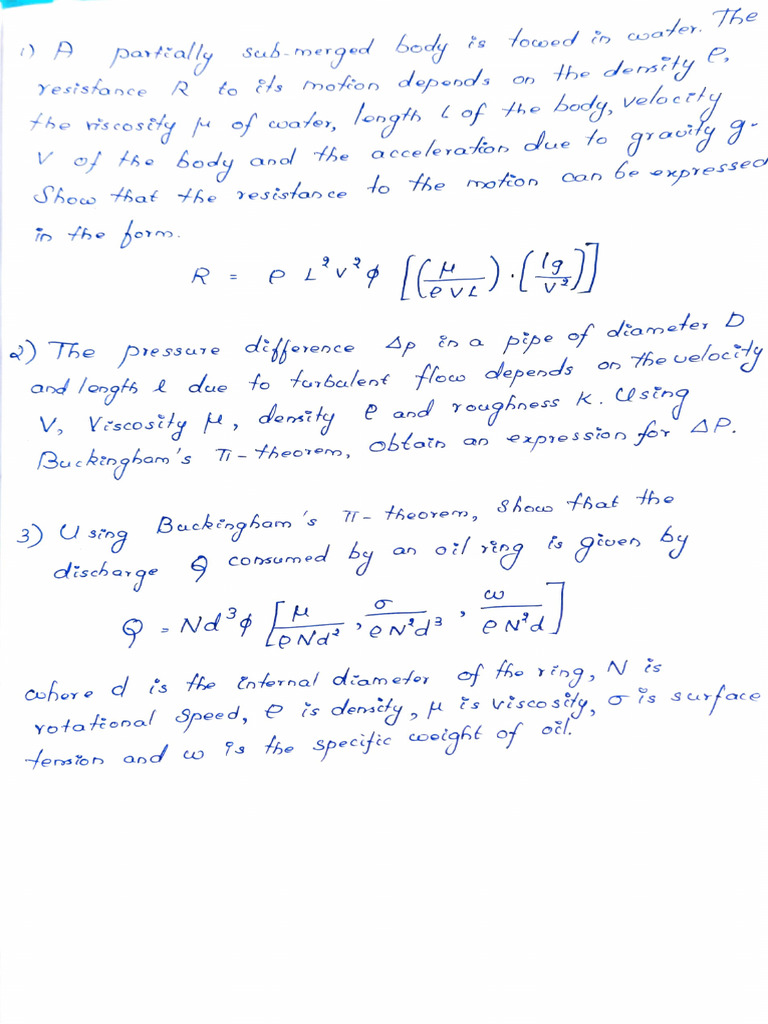 1) A partially sub-merged body is towed in water. The
resistance R to its motion depends on the density ρ,
the viscosity μ of water, length L of the body, velocity
V of the body and the acceleration due to gravity g.
Show that the resistance to the motion can be expressed
in the form.
R = ρ L²V²φ [(μ/ρVL) · (lg/V²)]
2) The pressure difference Δp in a pipe of diameter D
and length l due to turbulent flow depends on the velocity
V, Viscosity μ, density ρ and roughness K. Using
Buckingham's π-theorem, obtain an expression for ΔP.
3) Using Buckingham's π-theorem, show that the
discharge Q consumed by an oil ring is given by
Q = Nd³φ [μ/ρNd², σ/ρN²d³, ω/ρN²d]
where d is the internal diameter of the ring, N is
rotational speed, ρ is density, μ is viscosity, σ is surface
tension and ω is the specific weight of oil.